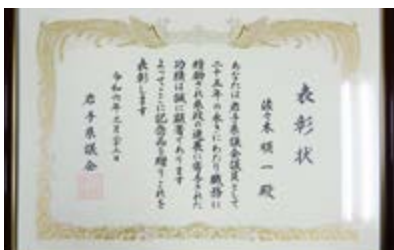 表彰状
佐々木 順一 殿
あなたは岩手県議会議員として
二十五年の永きにわたり職務に
精励され県政の発展に寄与された
功績は誠に顕著であります
よってここに記念品を贈りこれを
表彰します
令和六年
岩手県議会